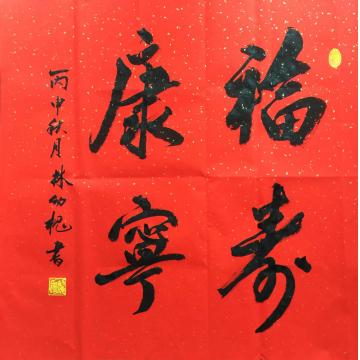 福寿
康寧
丙申秋月林幼槐書